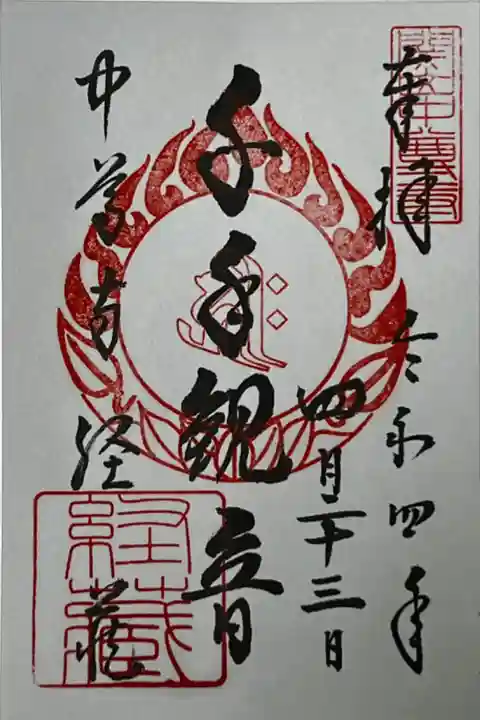 奉拝
令和四年
四月二十三日
千手観音
中尊寺
経蔵
経蔵